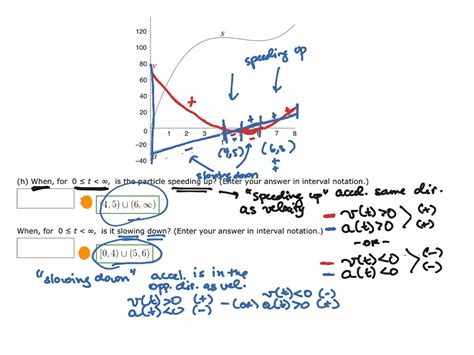 120
s
100
speeding up
80
60
v
40
20
0
1 2 3 7 8
−20
(4,5) (6,8)
−40
slowing down
(h) When, for 0 ≤ t < ∞, is the particle speeding up? (Enter your answer in interval notation.)
(4, 5) ∪ (6, ∞)
"speeding up" accel. same dir. as velocity
v(t)>0 (+)
a(t)>0 (+)
-or-
v(t)<0 (-)
a(t)<0 (-)
When, for 0 ≤ t < ∞, is it slowing down? (Enter your answer in interval notation.)
[0, 4) ∪ (5, 6)
"slowing down" accel. is in the
opp. dir. as vel.
v(t)>0 (+) -or- v(t)<0 (-)
a(t)<0 (-) a(t)>0 (+)